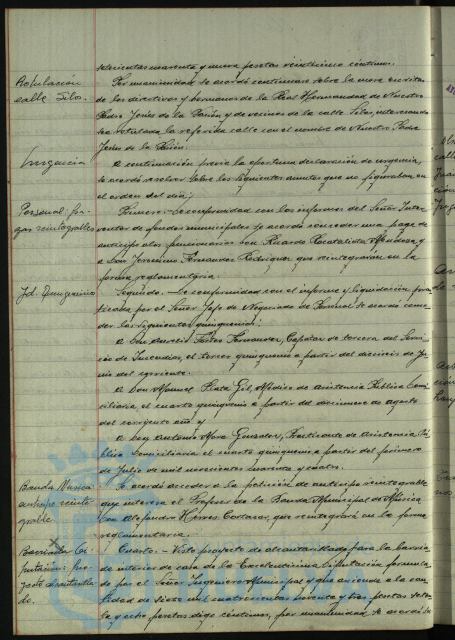 setecientas cuarenta y nueve pesetas veinticinco céntimos.
Rotulación
calle Silos.
Por unanimidad se acordó continuase sobre la mesa escritos
de los directivos y hermanos de la Real Hermandad de Nuestro
Padre Jesús de la Pasión y de vecinos de la calle Silos, interesando
sea rotulada la referida calle con el nombre de Nuestro Padre
Jesús de la Pasión.
Urgencia
A continuación previa la oportuna declaración de urgencia,
se acordó resolver sobre los siguientes asuntos que no figuraban en
el orden del día:
Personal: pa-
gas reintegrables
Primero.- De conformidad con los informes del Señor Inter-
ventor de fondos municipales se acordó conceder una paga de
anticipo a los funcionarios Don Ricardo Mendoza y
a Don Jeronimo Fernandez Rodriguez que reintegrarán en la
forma reglamentaria.
Id. Quinquenios
Segundo.- De conformidad con el informe y liquidación prac-
ticada por el Señor Jefe de Negociado de Personal se acordó conce-
der los siguientes quinquenios:
A Don Aurelio Fernandez, Capataz de tercera del Servi-
cio de Incendios, el tercer quinquenio a partir del dieciseis de Ju-
nio del corriente.
A Don Manuel Plata Gil, Médico de Asistencia Pública Domi-
ciliaria, el cuarto quinquenio a partir del diecinueve de agosto
del corriente año y
A Don Antonio Mora Gonzalez, Practicante de Asistencia Pú-
blica Domiciliaria el cuarto quinquenio a partir del primero
de Julio de mil novecientos cuarenta y cuatro.
Banda Música
anticipo reinte-
grable.
Se acordó acceder a la petición de anticipo reintegrable
que interesa el Profesor de la Banda Municipal de Música
Don Alejandro que reintegrará en la forma
reglamentaria.
Barriada Di-
putación: pro-
yecto alcantarilla-
do.
Cuarto.- Visto proyecto de alcantarillado para la barria-
da interior de casa de la Excelentísima Diputación formula-
do por el Señor Ingeniero Municipal y que asciende a la can-
tidad de siete mil cuatrocientas noventa y tres pesetas seten-
ta y ocho pesetas digo céntimos, por unanimidad, se acordó su